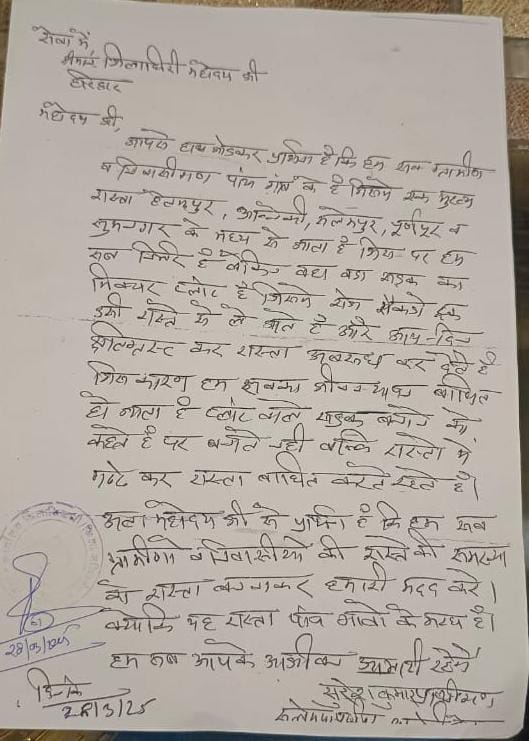 सेवा में,
श्रीमान जिलाधिकारी महोदय जी
हरिद्वार
महोदय जी,
आपसे हाथ जोडकर प्रार्थना है कि हम सब ग्रामीण
व निवासीगण पांच गांव के है जिसमे एक मुख्य
रास्ता हेतमपुर, आन्नेकी, सलेमपुर, पूर्णपुर व
सुमननगर के मध्य से जाता है जिस पर हम
सब निर्भर है लेकिन वहा बडा सडक का
मिक्चर प्लांट है जिसमे रोज सैकडो ट्रक
इसी रास्ते से ले जाते है और आय-दिन
क्षतिग्रस्त कर रास्ता अवरुध कर देते है
जिस कारण हम सबका बाधित
हो जाता है प्लांट वाले सडक बनाने को
कहते है पर बनाते नही बल्कि रास्ते मे
गढ्ढे कर रास्ता बाधित करते रहते है।
अतः महोदय जी से प्रार्थना है कि हम सब
ग्रामीणो व निवासीयो की रास्ते की समस्या
का रास्ता बनवाकर हमारी मदद करे।
क्योकि यह रास्ता पांच गांवो के मध्य है।
हम सब आपके आजीवन आभारी रहेंगे
28/3/2025
दिनांक
28/3/25
सुरेश कुमार